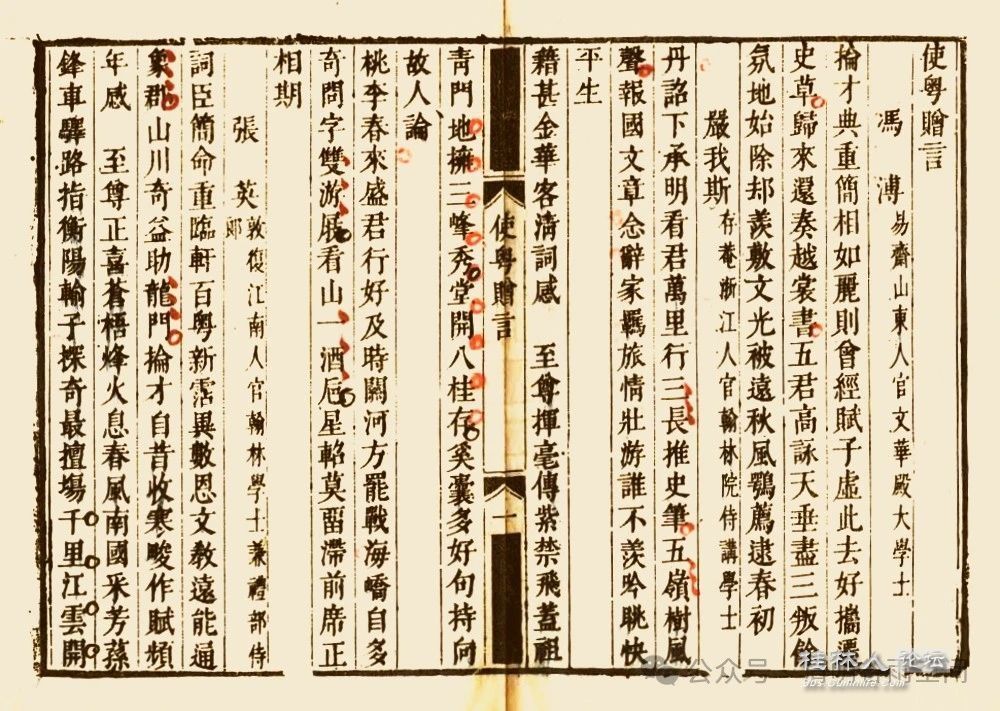 使粵贈言
馮　溥 易齋山東人官文華殿大學士
掄才典重簡相如麗則曾經賦子虛此去好攜漂
史草歸來還奏越裳書五君高詠天垂盡三叛餘
氛地始除却羨敷文光被遠秋風鶚薦逮春初
嚴我斯 存菴浙江人官翰林院侍講學士
丹詔下承明看君萬里行三長推史筆五嶺樹風
聲報國文章念辭家羈旅情壯游誰不羨吟眺快
平生
藉甚金華客清詞感　至尊揮毫傳紫禁飛蓋祖
青門地擁三峰秀堂開八桂存奚囊多好句持向
故人論
使粵贈言
一
桃李春來盛君行好及時關河方罷戰海嶠自多
奇問字雙游屐看山一酒巵星軺莫畱滯前席正
相期
張　英 敦復江南人官翰林學士兼禮部侍郎
詞臣簡命重臨軒百粵新霑異數恩文教遠能通
象郡山川奇益助龍門掄才自昔收寒畯作賦頻
年感　至尊正喜蒼梧烽火息春風南國采芳蓀
鋒車驛路指衡陽輸子探奇最擅場千里江雲開
公众号
桂林人论坛